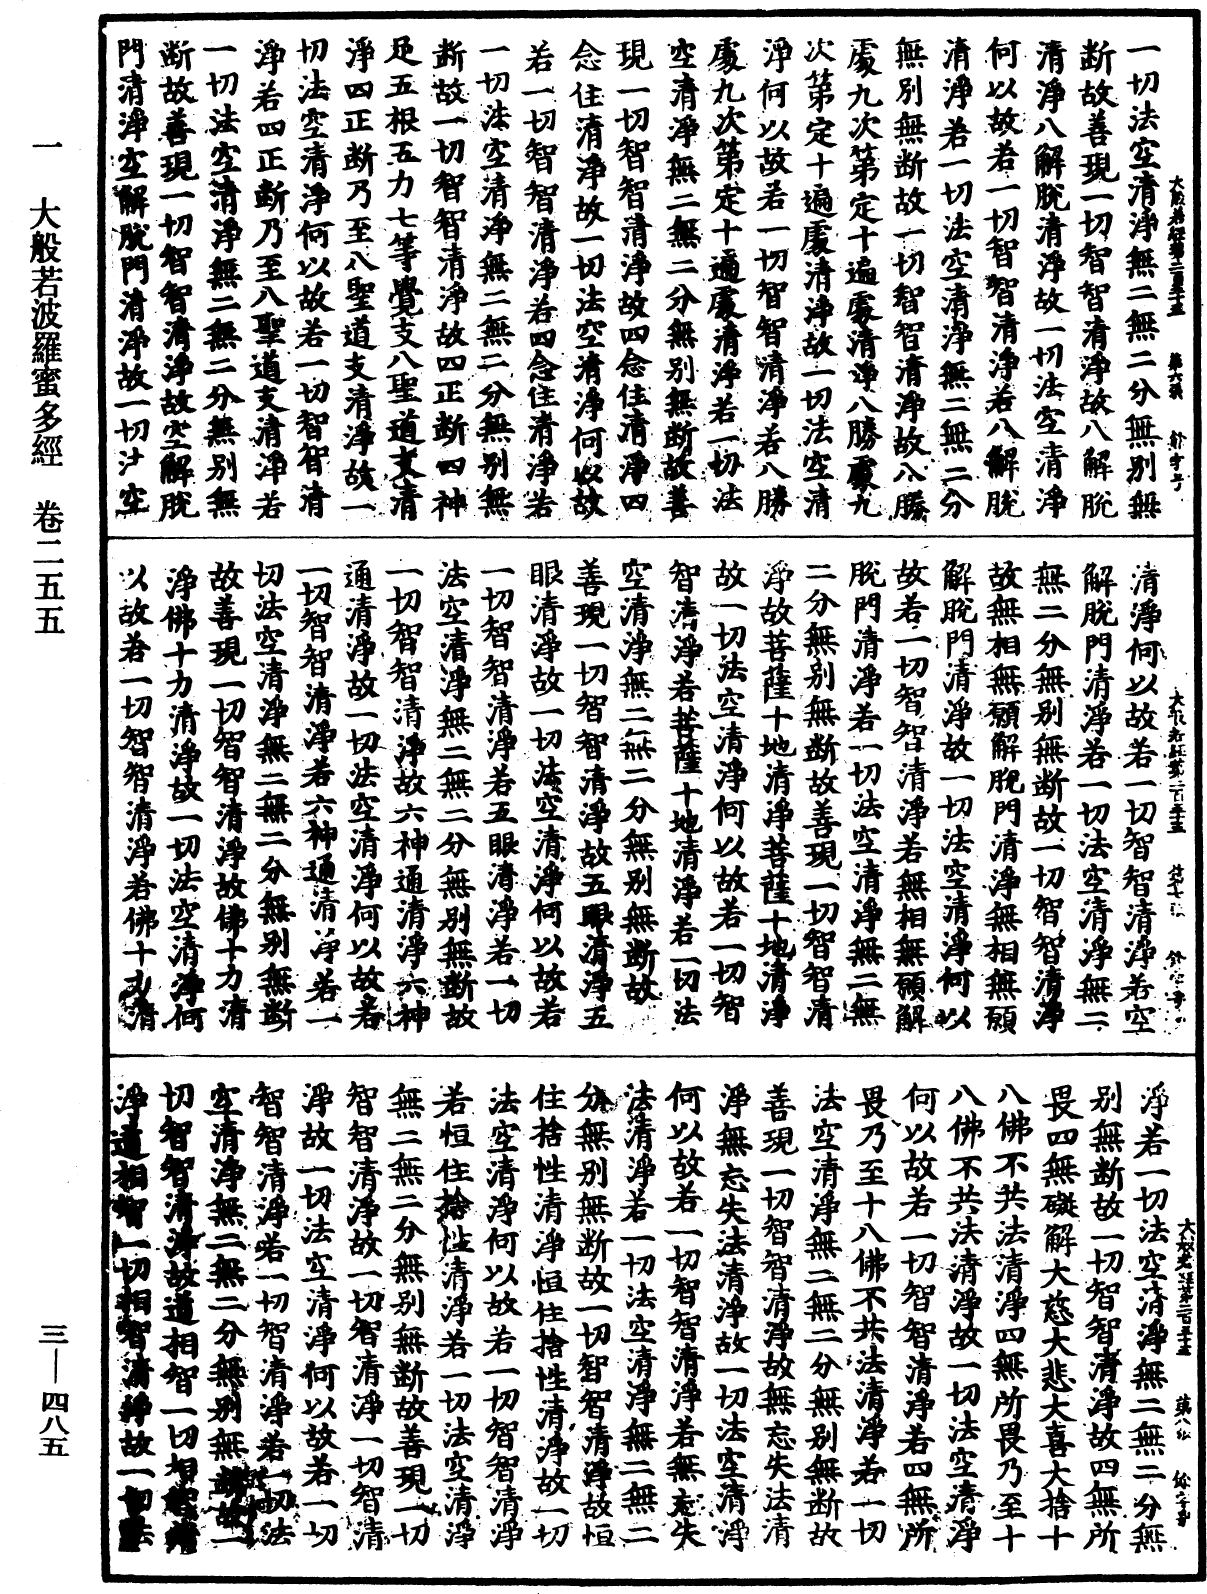 一切法空清淨無二無二分無別無
断故善現一切智智清淨故八解脫
清淨八解脫清淨故一切法空清淨
何以故若一切智智清淨若八解脫
清淨若一切法空清淨無二無二分
無別無断故一切智智清淨故八勝
處九次第定十遍處清淨八勝處九
次第定十遍處清淨故一切法空清
淨何以故若一切智智清淨若八勝
處九次第定十遍處清淨若一切法
空清淨無二無二分無別無断故善
現一切智智清淨故四念住清淨四
念住清淨故一切法空清淨何以故
若一切智智清淨若四念住清淨若
一切法空清淨無二無二分無別無
断故一切智智清淨故四正断四神
足五根五力七等覺支八聖道支清
淨四正断乃至八聖道支清淨故一
切法空清淨何以故若一切智智清
淨若四正断乃至八聖道支清淨若
一切法空清淨無二無二分無別無
断故善現一切智智清淨故空解脫
門清淨空解脫門清淨故一切法空
大般若經第二百五十五 第六張
清淨何以故若一切智智清淨若空
解脫門清淨若一切法空清淨無二
無二分無別無断故一切智智清淨
故無相無願解脫門清淨無相無願
解脫門清淨故一切法空清淨何以
故若一切智智清淨若無相無願解
脫門清淨若一切法空清淨無二無
二分無別無断故善現一切智智清
淨故菩薩十地清淨菩薩十地清淨
故一切法空清淨何以故若一切智
智清淨若菩薩十地清淨若一切法
空清淨無二無二分無別無断故
善現一切智智清淨故五眼清淨五
眼清淨故一切法空清淨何以故若
一切智智清淨若五眼清淨若一切
法空清淨無二無二分無別無断故
一切智智清淨故六神通清淨六神
通清淨故一切法空清淨何以故若
一切智智清淨若六神通清淨若一
切法空清淨無二無二分無別無断
故善現一切智智清淨故佛十力清
淨佛十力清淨故一切法空清淨何
以故若一切智智清淨若佛十力清
大般若經第二百五十五 第七張
淨若一切法空清淨無二無二分無
別無断故一切智智清淨故四無所
畏四無礙解大慈大悲大喜大捨十
八佛不共法清淨四無所畏乃至十
八佛不共法清淨故一切法空清淨
何以故若一切智智清淨若四無所
畏乃至十八佛不共法清淨若一切
法空清淨無二無二分無別無断故
善現一切智智清淨故無忘失法清
淨無忘失法清淨故一切法空清淨
何以故若一切智智清淨若無忘失
法清淨若一切法空清淨無二無二
分無別無断故一切智智清淨故恒
住捨性清淨恒住捨性清淨故一切
法空清淨何以故若一切智智清淨
若恒住捨性清淨若一切法空清淨
無二無二分無別無断故善現一切
智智清淨故一切智清淨一切智清
淨故一切法空清淨何以故若一切
智智清淨若一切智清淨若一切法
空清淨無二無二分無別無断故一
切智智清淨故道相智一切相智清
淨道相智一切相智清淨故一切法
大般若經第二百五十五 第八張
一 大般若波羅蜜多經 卷二五五
三—四八五